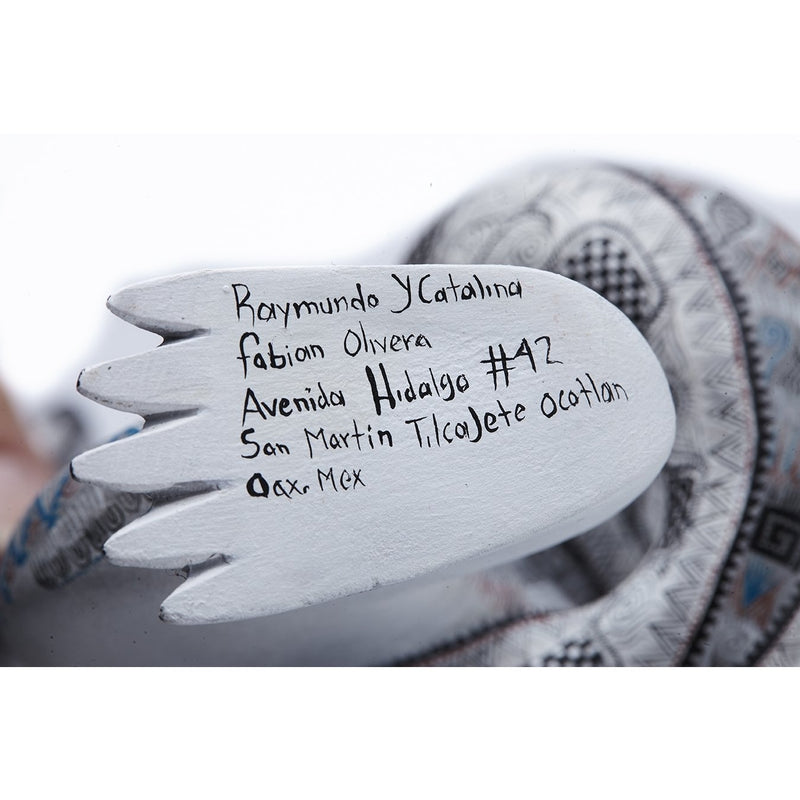 Raymundo Y Catalina
fabian Olivera
Avenida Hidalgo #42
San Martin TilcaJete Ocotlan
Oax. Mex